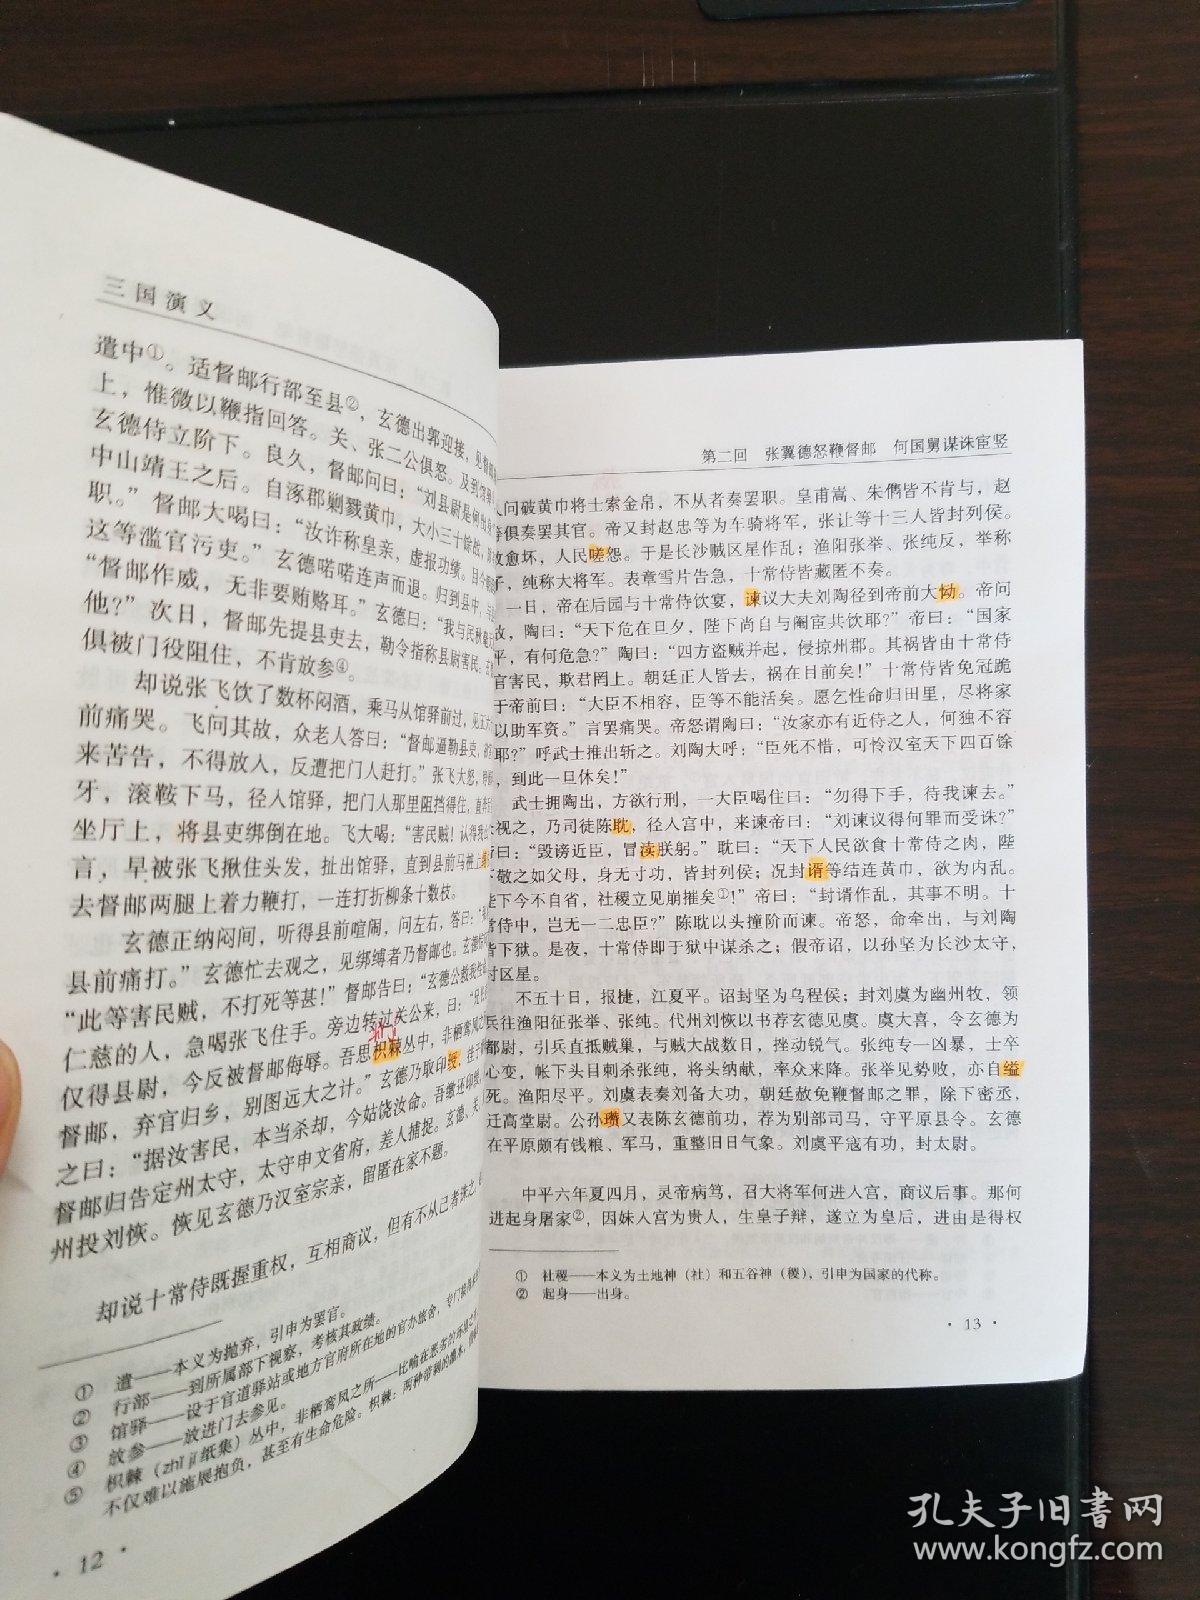 三国演义
遣中①。适督邮行部至县②，玄德出郭迎接，见督邮
上，惟微以鞭指回答。关、张二公俱怒。及到馆驿
玄德侍立阶下。良久，督邮问曰：“刘县尉是何出
中山靖王之后。自涿郡剿戮黄巾，大小三十余战，
职。”督邮大喝曰：“汝诈称皇亲，虚报功绩。目今
这等滥官污吏。”玄德喏喏连声而退。归到县中，与
“督邮作威，无非要贿赂耳。”玄德曰：“我与民秋毫
他？”次日，督邮先提县吏去，勒令指称县尉害民。玄
俱被门役阻住，不肯放参④。
却说张飞饮了数杯闷酒，乘马从馆驿前过，见五六
前痛哭。飞问其故，众老人答曰：“督邮逼勒县吏，
来苦告，不得放入，反遭把门人赶打。”张飞大怒，
牙，滚鞍下马，径入馆驿，把门人那里阻挡得住，直
坐厅上，将县吏绑倒在地。飞大喝：“害民贼！认得我
言，早被张飞揪住头发，扯出馆驿，直到县前马桩上
去督邮两腿上着力鞭打，一连打折柳条十数枝。
玄德正纳闷间，听得县前喧闹，问左右，答曰：
县前痛打。”玄德忙去观之，见绑缚者乃督邮也。玄德
“此等害民贼，不打死等甚！”督邮告曰：“玄德公救我
仁慈的人，急喝张飞住手。旁边转过关公来，曰：“兄
仅得县尉，今反被督邮侮辱。吾思枳棘丛中，非栖鸾凤之
督邮，弃官归乡，别图远大之计。”玄德乃取印绶，挂于
之曰：“据汝害民，本当杀却，今姑饶汝命。吾缴还印绶，
督邮归告定州太守，太守申文省府，差人捕捉。玄德、关、
州投刘恢。恢见玄德乃汉室宗亲，留匿在家不题。
却说十常侍既握重权，互相商议，但有不从己者诛之。
① 遣——本义为抛弃，引申为罢官。
② 行部——到所属部下视察，考核其政绩。
③ 馆驿——设于官道驿站或地方官府所在地的官办旅舍，专门
④ 放参——放进门去参见。
⑤ 枳棘（zhǐ jí纸集）丛中，非栖鸾凤之所——比喻在恶劣的环境之
不仅难以施展抱负，甚至有生命危险。枳棘：两种带刺的灌木，
· 12 ·
第二回　张翼德怒鞭督邮　何国舅谋诛宦竖
人问破黄巾将士索金帛，不从者奏罢职。皇甫嵩、朱儁皆不肯与，赵
等俱奏罢其官。帝又封赵忠等为车骑将军，张让等十三人皆封列侯。
政愈坏，人民嗟怨。于是长沙贼区星作乱；渔阳张举、张纯反，举称
子，纯称大将军。表章雪片告急，十常侍皆藏匿不奏。
一日，帝在后园与十常侍饮宴，谏议大夫刘陶径到帝前大恸。帝问
故，陶曰：“天下危在旦夕，陛下尚自与阉宦共饮耶？”帝曰：“国家
平，有何危急？”陶曰：“四方盗贼并起，侵掠州郡。其祸皆由十常侍
官害民，欺君罔上。朝廷正人皆去，祸在目前矣！”十常侍皆免冠跪
于帝前曰：“大臣不相容，臣等不能活矣。愿乞性命归田里，尽将家
以助军资。”言罢痛哭。帝怒谓陶曰：“汝家亦有近侍之人，何独不容
耶？”呼武士推出斩之。刘陶大呼：“臣死不惜，可怜汉室天下四百馀
，到此一旦休矣！”
武士拥陶出，方欲行刑，一大臣喝住曰：“勿得下手，待我谏去。”
众视之，乃司徒陈耽，径入宫中，来谏帝曰：“刘谏议得何罪而受诛？”
帝曰：“毁谤近臣，冒渎朕躬。”耽曰：“天下人民欲食十常侍之肉，陛
下敬之如父母，身无寸功，皆封列侯；况封谞等结连黄巾，欲为内乱。
陛下今不自省，社稷立见崩摧矣①！”帝曰：“封谞作乱，其事不明。十
常侍中，岂无一二忠臣？”陈耽以头撞阶而谏。帝怒，命牵出，与刘陶
皆下狱。是夜，十常侍即于狱中谋杀之；假帝诏，以孙坚为长沙太守，
讨区星。
不五十日，报捷，江夏平。诏封坚为乌程侯；封刘虞为幽州牧，领
兵往渔阳征张举、张纯。代州刘恢以书荐玄德见虞。虞大喜，令玄德为
都尉，引兵直抵贼巢，与贼大战数日，挫动锐气。张纯专一凶暴，士卒
心变，帐下头目刺杀张纯，将头纳献，率众来降。张举见势败，亦自缢
死。渔阳尽平。刘虞表奏刘备大功，朝廷赦免鞭督邮之罪，除下密丞，
迁高堂尉。公孙瓒又表陈玄德前功，荐为别部司马，守平原县令。玄德
在平原颇有钱粮、军马，重整旧日气象。刘虞平寇有功，封太尉。
中平六年夏四月，灵帝病笃，召大将军何进入宫，商议后事。那何
进起身屠家②，因妹入宫为贵人，生皇子辩，遂立为皇后，进由是得权
① 社稷——本义为土地神（社）和五谷神（稷），引申为国家的代称。
② 起身——出身。
· 13 ·
孔夫子旧书网
www.kongfz.com